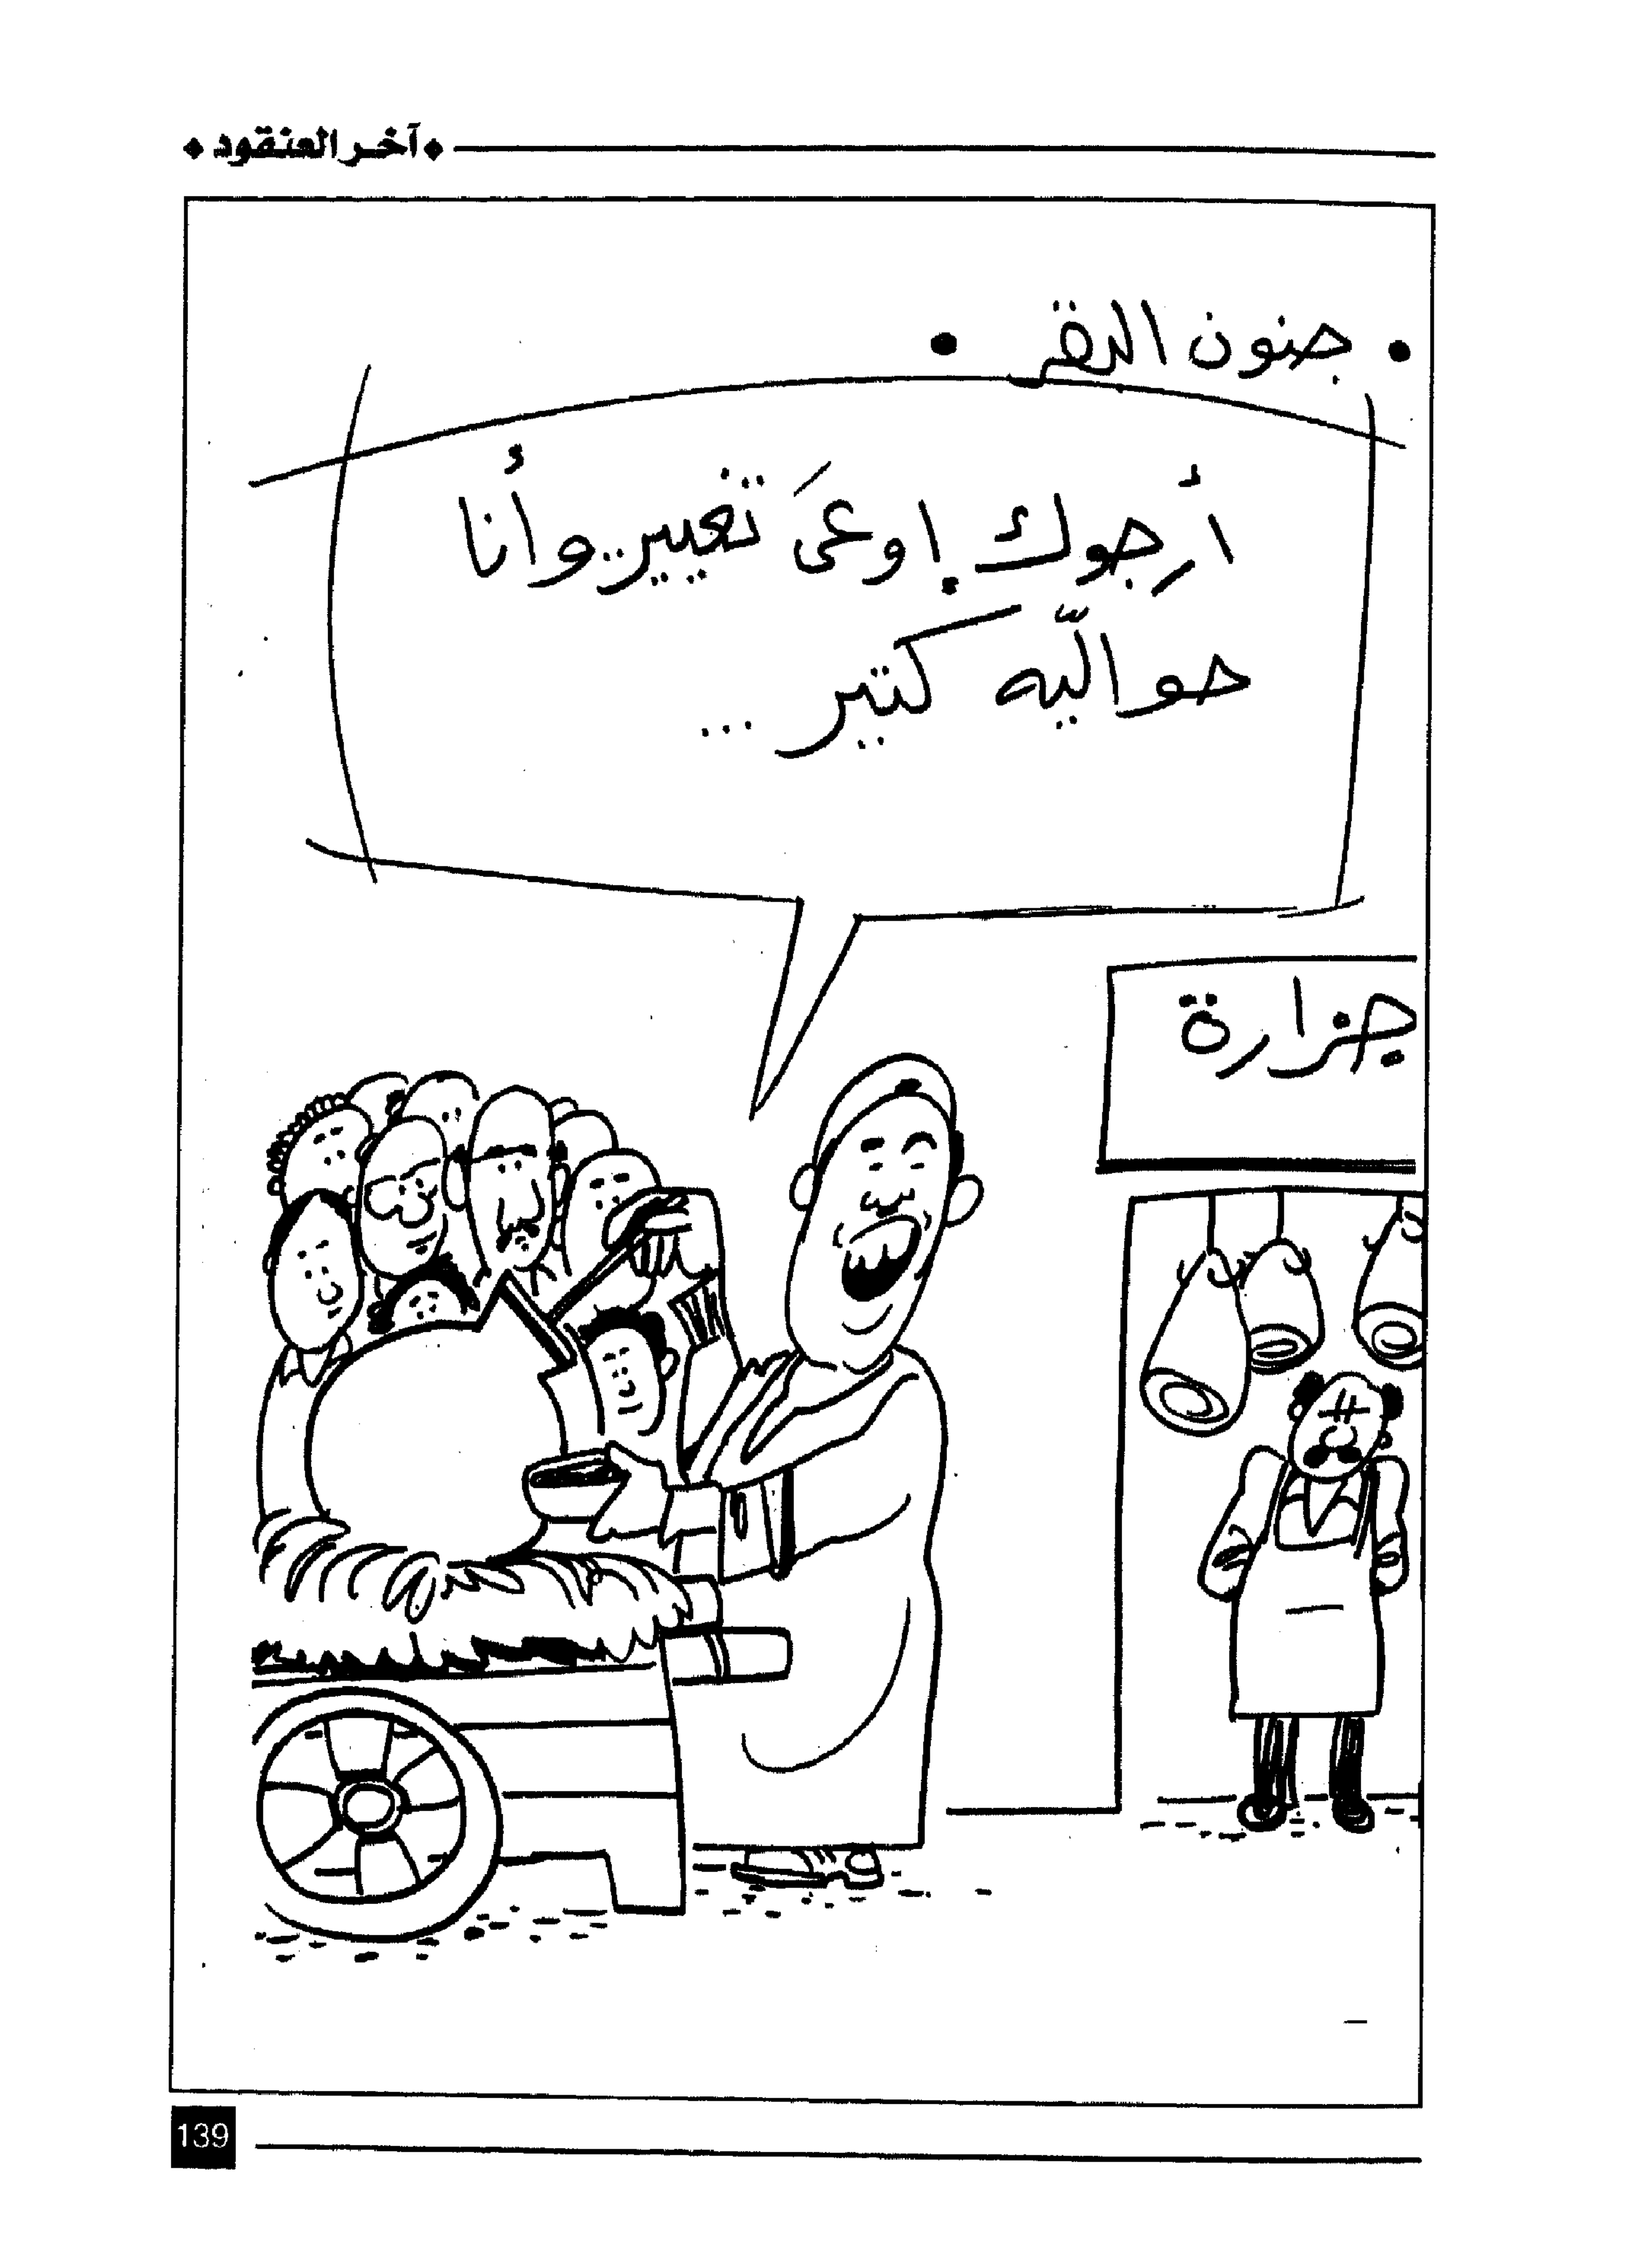 آخر العنقود
• جنون البقر •
أرجوك إوعىَ تغيير..وأنا
حواليّه كتير ...
جزارة
139